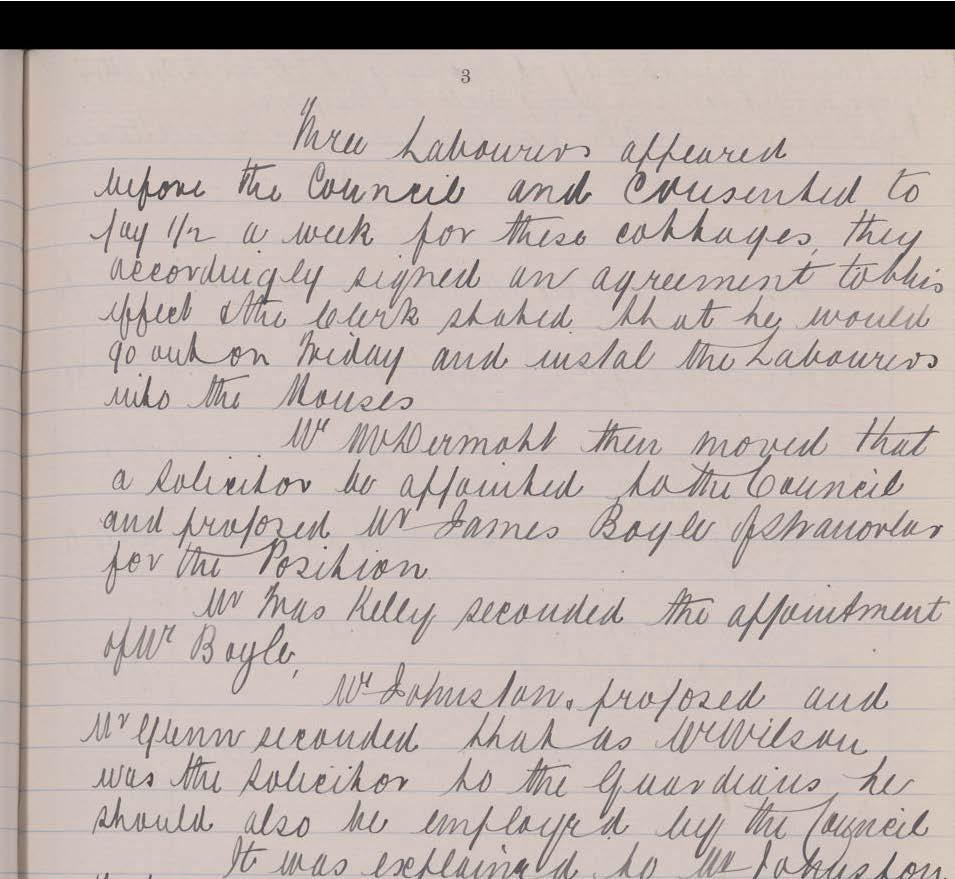 3
Three Labourers appeared
before the Council and Consented to
pay 1/2 a week for these cottages, they
accordingly signed an agreement to this
effect & the Clerk stated that he would
go out on Friday and instal the Labourers
into the Houses
Mr McDermott then moved that
a Solicitor be appointed to the Council
and proposed Mr James Boyle of Stranorlar
for the Position
Mr Thos Kelly seconded the appointment
of Mr Boyle,
Mr Johnston. proposed and
Mr Glenn seconded that as Mr Wilson
was the Solicitor to the Guardians he
should also be employed by the Council
It was explained to Mr Johnston